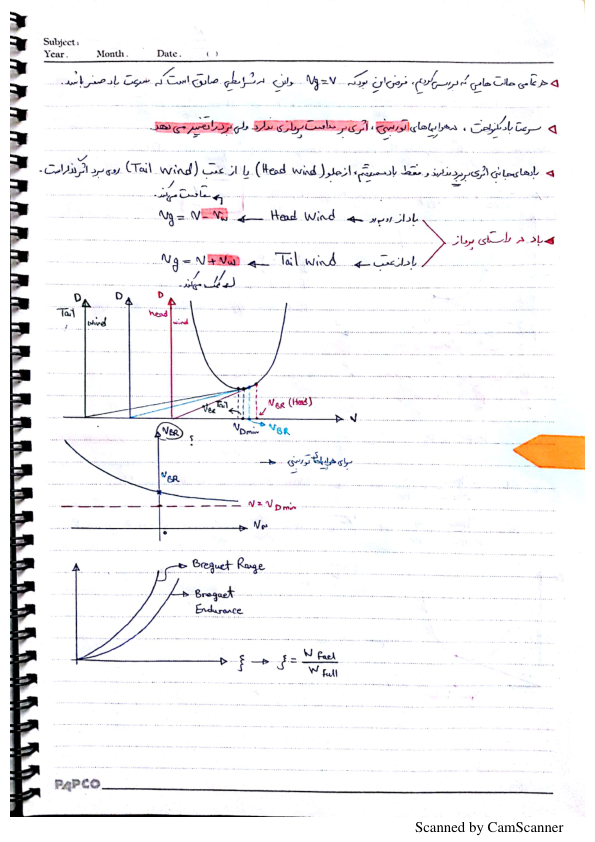 Subject:
Year. Month. Date. ( )
در تمامی حالت هایی که بررسی کردیم، فرض این بود که Vg=V و این در شرایطی صادق است که سرعت باد صفر باشد.
سرعت باد یکنواخت، در هواپیماهای توربینی، اثری بر مداومت پروازی ندارد ولی برد را تغییر می دهد
بادهای جانبی اثری بر برد ندارند و فقط باد مستقیم، از جلو (Head wind) یا از عقب (Tail wind) روی برد اثرگذار است.
مقاومت میکند.
باد از روبرو ← Head Wind ← Vg = V - Vw
باد در راستای پرواز
باد از عقب ← Tail wind ← Vg = V + Vw
کمک میکند.
D D D
Tail wind head wind
VBR Tail VBR (Head)
VDmin VBR V
VBR ؟
VBR برای هواپیماهای توربینی
V = VDmin
Vw
Breguet Range
Breguet
Endurance
ξ → ξ = W Fuel / W Full
PAPCO
Scanned by CamScanner